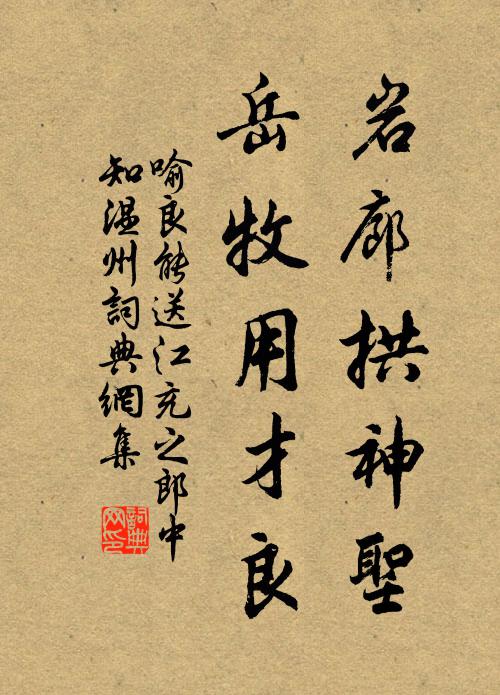 岩廊拱神聖
岳牧用才良
喻良能送江充之郎中
知溫州詞典網集
詞典
网印